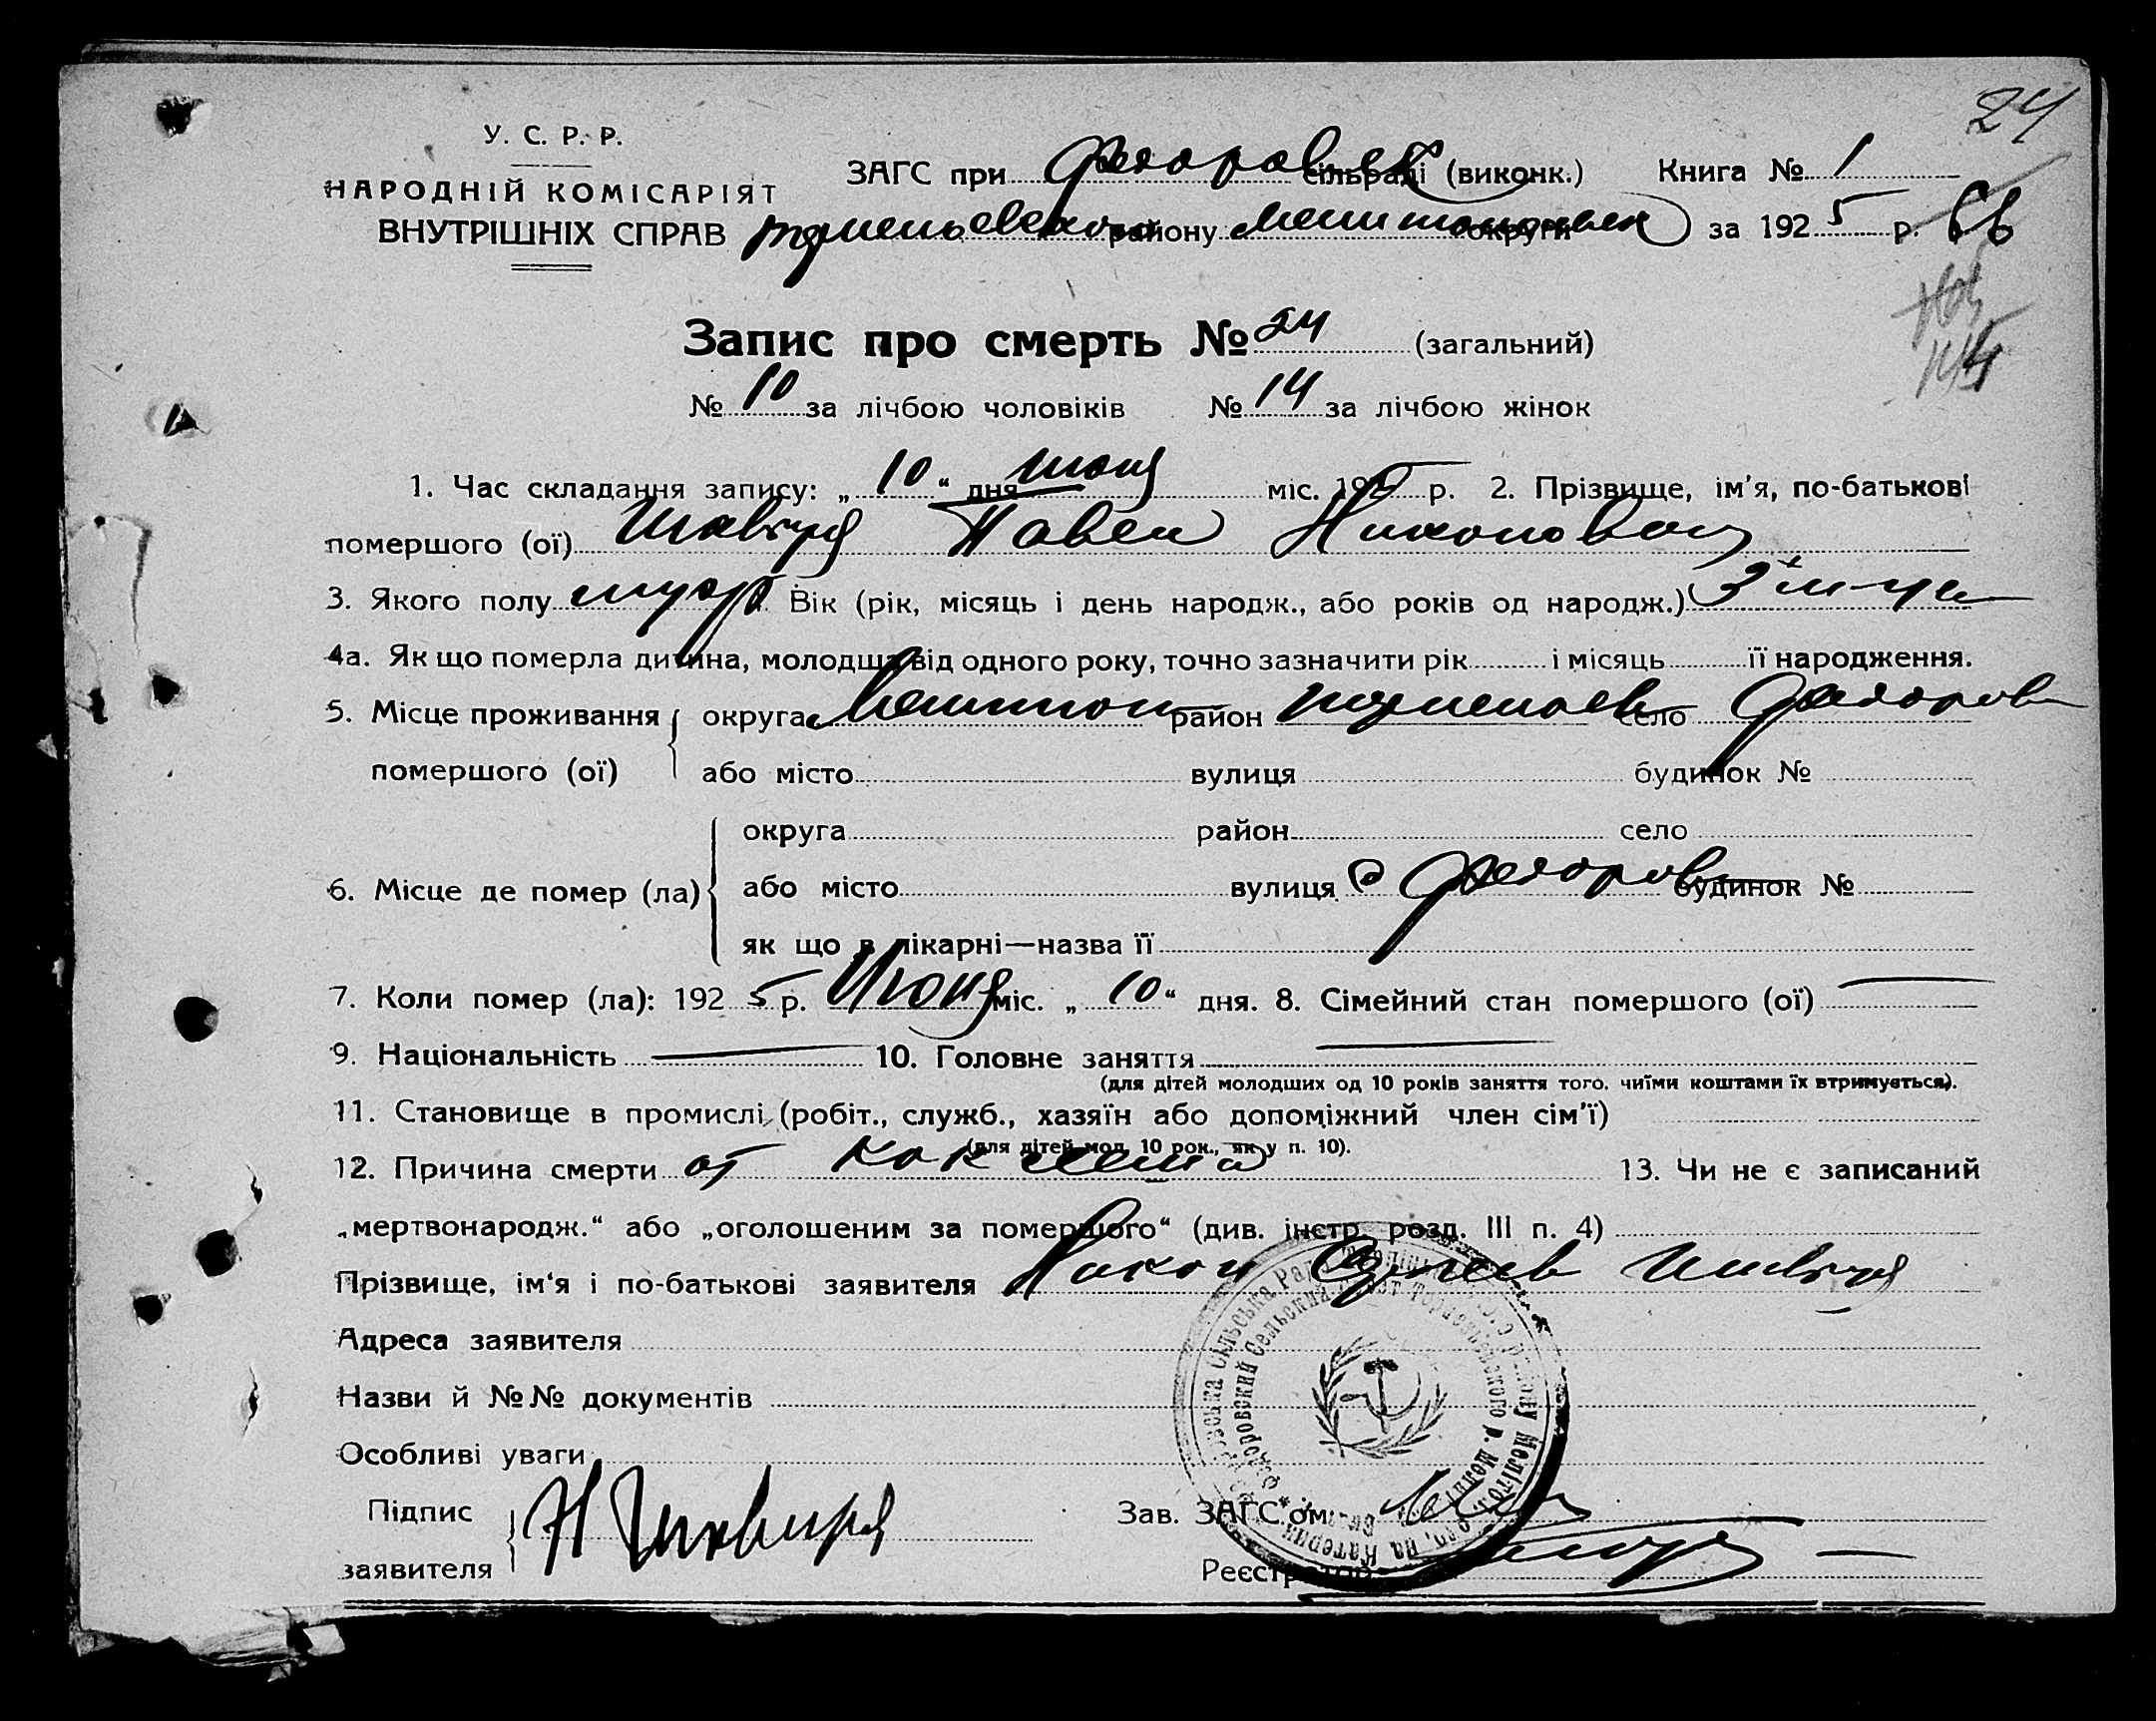 24
У. С. Р. Р.
НАРОДНІЙ КОМІСАРІЯТ
ВНУТРІШНІХ СПРАВ
ЗАГС при Федоровск сільраді (виконк.) Книга № 1
району округи за 1925 р.
Запис про смерть № 24 (загальний)
№ 10 за лічбою чоловіків № 14 за лічбою жінок
1. Час складання запису: „ 10 “ дня июня міс. 1925 р. 2. Прізвище, ім'я, по-батькові
помершого (ої) Павел Никонович
3. Якого полу муж Вік (рік, місяць і день народж., або років од народж.) 3
4а. Як що померла дитина, молодша від одного року, точно зазначити рік і місяць її народження.
5. Місце проживання округа район село Федоров
помершого (ої) або місто вулиця будинок №
округа район село
6. Місце де помер (ла) або місто вулиця С Федоров будинок №
як що в лікарні—назва її
7. Коли помер (ла): 1925 р. Июня міс. „ 10 “ дня. 8. Сімейний стан помершого (ої) —
9. Національність — 10. Головне заняття —
(для дітей молодших од 10 років заняття того, чиїми коштами їх втримується).
11. Становище в промислі (робіт., служб., хазяїн або допоміжний член сім'ї)
(для дітей мол. 10 рок., як у п. 10).
12. Причина смерти от коклюша 13. Чи не є записаний
„мертвонародж.“ або „оголошеним за помершого“ (див. інстр. розд. III п. 4)
Прізвище, ім'я і по-батькові заявителя Никон
Адреса заявителя
Назви й №№ документів
Особливі уваги
Підпис
заявителя
Зав. ЗАГС'ом
Реєстратор